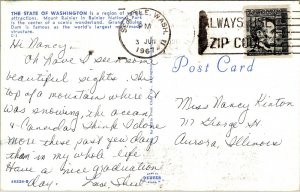 THE STATE OF WASHINGTON is a region of
attractions. Mount Rainier in Rainier National Park
is the center of a scenic wonderland. Grand Coulee
Dam is famous as the world's largest
structure.
SEATTLE, WASH.
PM
3 JUN
1967
ALWAYS USE
ZIP CODE
Hi Nancy,
Oh have I seen some
beautiful sights. The
top of a mountain where it
was snowing, the ocean
& Canada. I think I done
more these past few days
than in my whole life.
Have a nice graduation
day. Love, Sheri
Post Card
Miss Nancy Kinton
W George St.
Aurora, Illinois